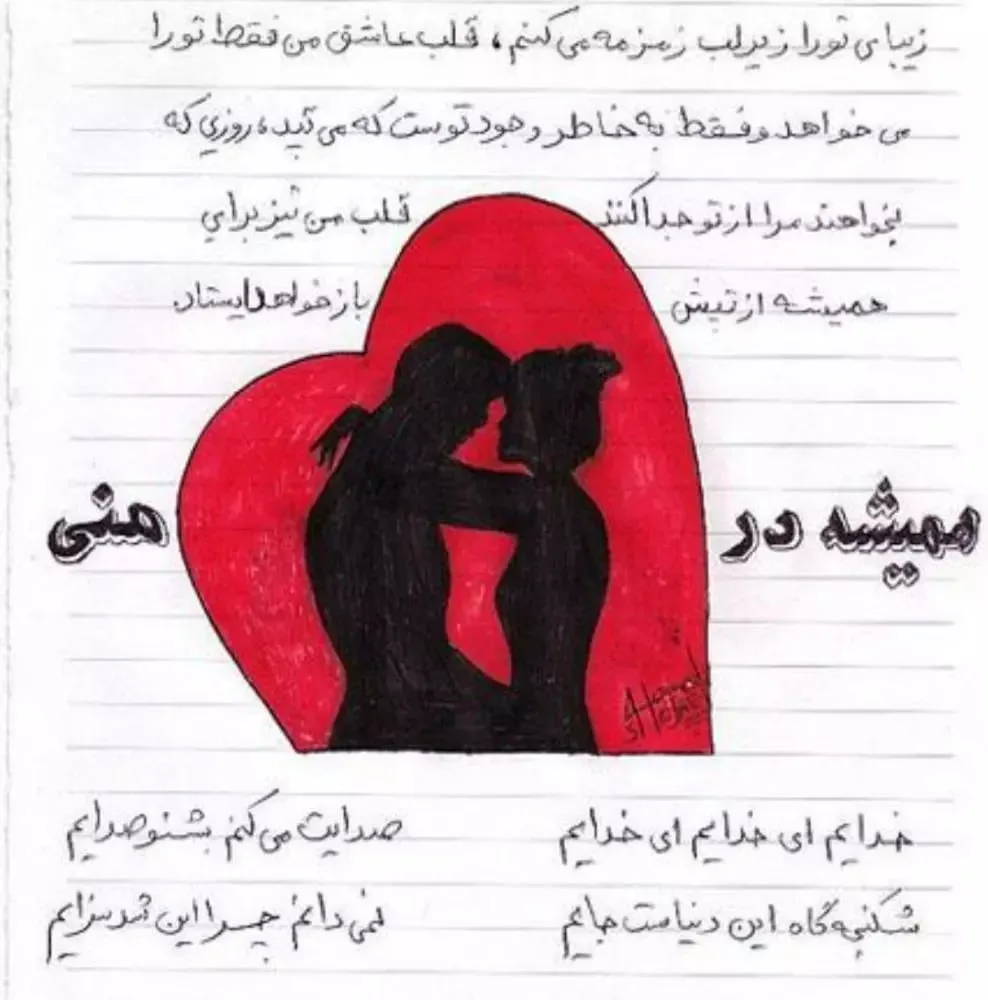 زیبای تو را زیر لب زمزمه می کنم، قلب عاشق من فقط تو را
می خواهد و فقط به خاطر وجود توست که می تپد، روزی که
بخواهند مرا از تو جدا کنند قلب من نیز برای
همیشه از تپش باز خواهد ایستاد.
همیشه در منی
خدایم ای خدایم ای خدایم صدایت می کنم بشنو صدایم
شکنجه گاه این دنیاست جایم نمی دانم چرا این شد سزایم